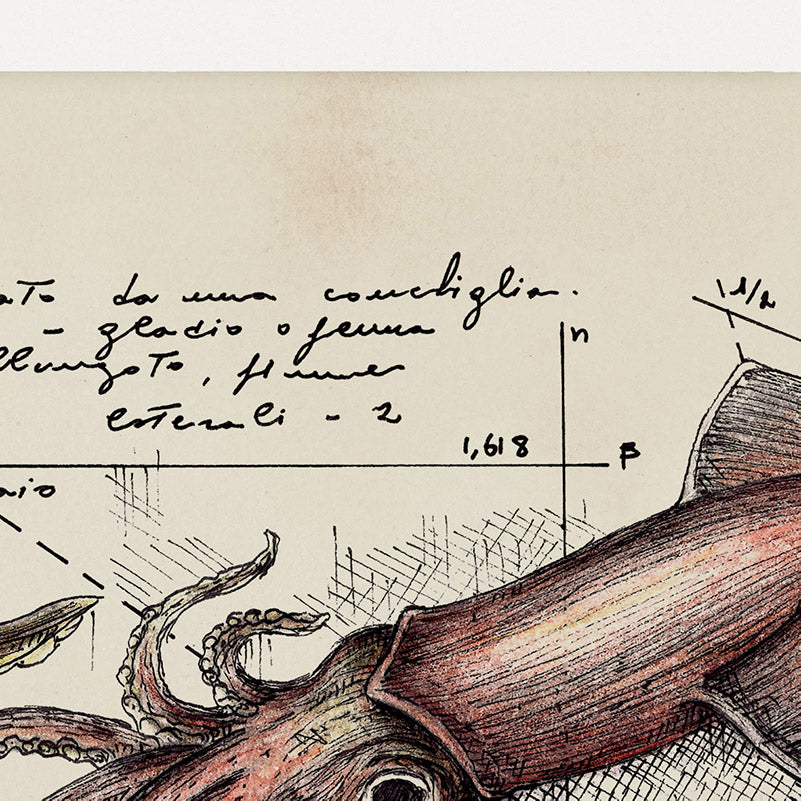 ato da una conchiglia.
- gladio o penna
llungato, pinne
laterali - 2
1 1/2
n
1,618
β
aio